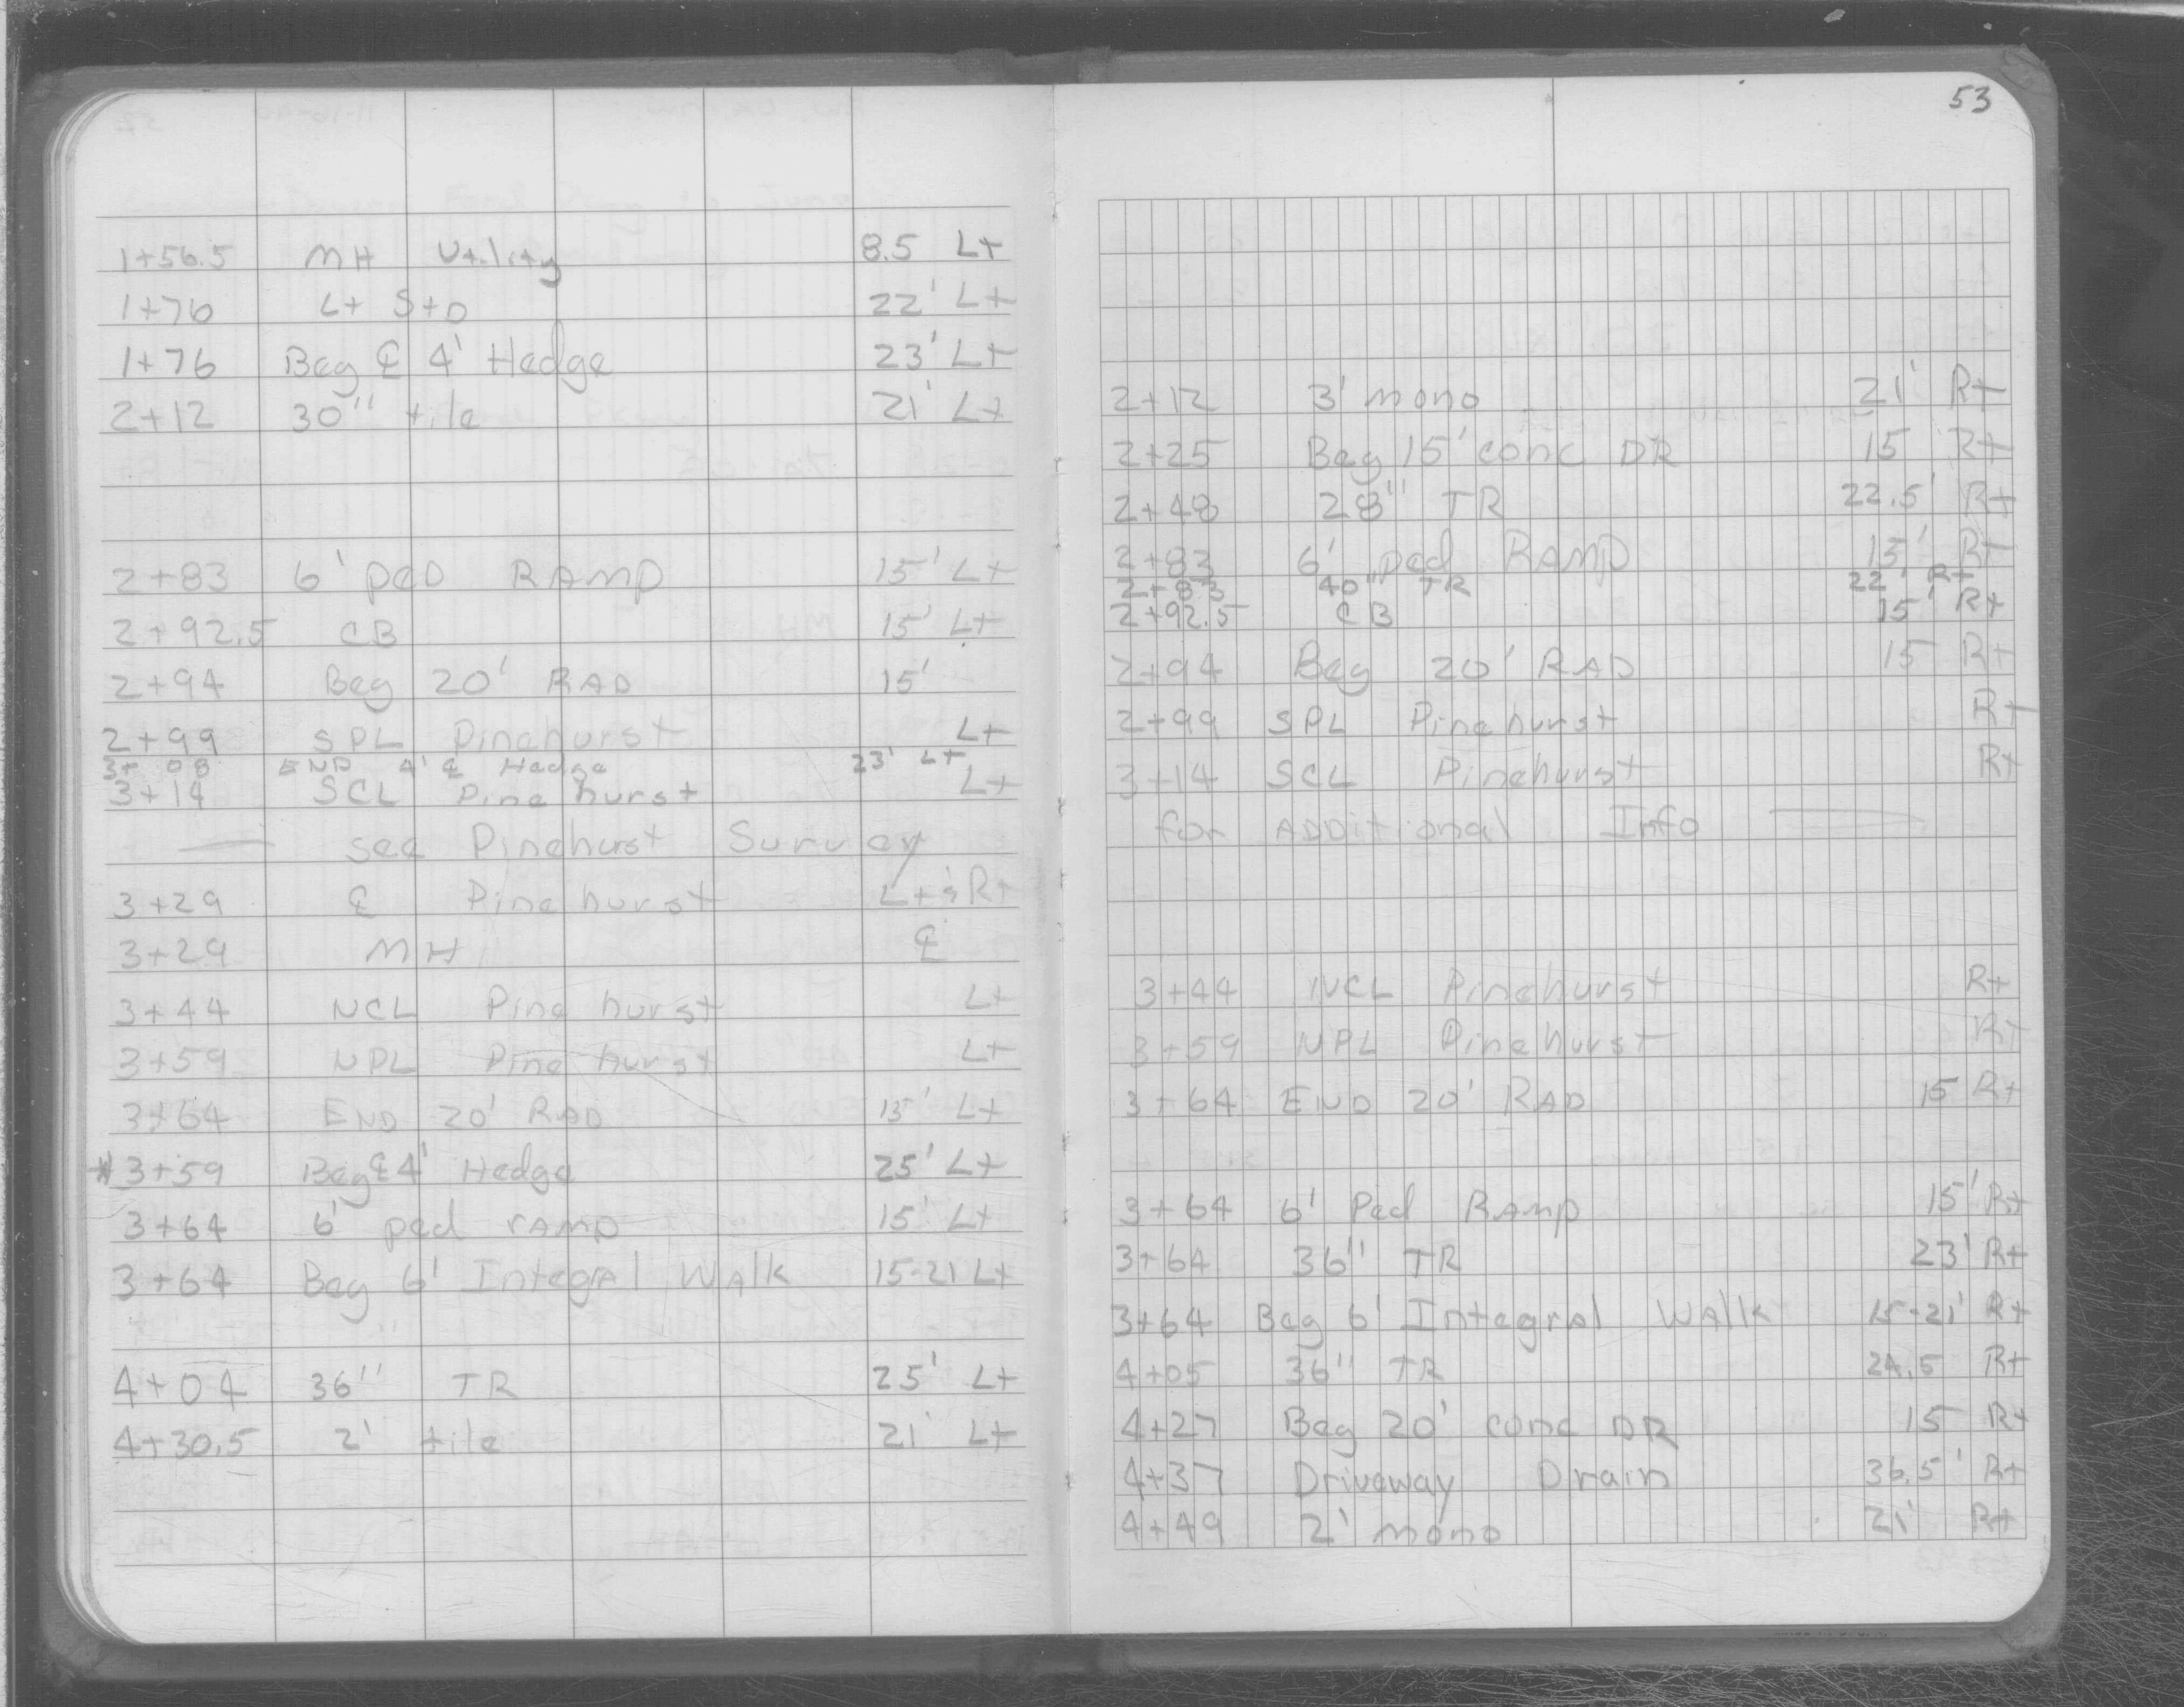 1+56.5 MH Utility 8.5 Lt
1+76 Lt StD 22' Lt
1+76 Beg ℄ 4' Hedge 23' Lt
2+12 30" tile 21' Lt
2+83 6' peD RAmp 15' Lt
2+92.5 CB 15' Lt
2+94 Beg 20' RAD 15'
2+99 SPL Pinehurst Lt
3+08 END 4' ℄ Hedge 23' Lt
3+14 SCL Pinehurst Lt
— see Pinehurst Survey
3+29 ℄ Pinehurst Lt & Rt
3+29 MH ℄
3+44 NCL Pinehurst Lt
3+59 NPL Pinehurst Lt
3+64 END 20' RAD 15' Lt
* 3+59 Beg ℄ 4' Hedge 25' Lt
3+64 6' ped rAmp 15' Lt
3+64 Beg 6' IntegrAl WAlk 15-21 Lt
4+04 36" TR 25' Lt
4+30.5 2' tile 21' Lt
53
2+12 3' mono 21' Rt
2+25 Beg 15' conc DR 15 Rt
2+48 28" TR 22.5' Rt
2+83 6' ped RAmp 15' Rt
2+83 40" TR 22' Rt
2+92.5 CB 15' Rt
2+94 Beg 20' RAD 15 Rt
2+99 SPL Pinehurst Rt
3+14 SCL Pinehurst Rt
for ADDitional Info —
3+44 NCL Pinehurst Rt
3+59 NPL Pinehurst Rt
3+64 END 20' RAD 15 Rt
3+64 6' Ped RAmp 15' Rt
3+64 36" TR 23' Rt
3+64 Beg 6' IntegrAl WAlk 15-21' Rt
4+05 36" TR 24.5 Rt
4+27 Beg 20' conc DR 15 Rt
4+37 Driveway Drain 36.5' Rt
4+49 2' mono 21' Rt